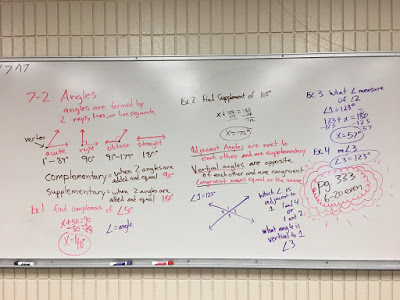 7-2 Angles
angles are formed by
2 rays, lines, or line segments
vertex
acute right obtuse straight
1°-89° 90° 91°-179° 180°
Complementary = when 2 angles are
added and equal 90°
Supplementary = when 2 angles are
added and equal 180°
Ex. 1 Find complement of ∠50°
x+50=90
X=40°
∠=angle
Ex. 2 Find Supplement of 108°
x+108=180
X=72°
Adjacent Angles are next to
each other and are supplementary
Vertical angles are opposite
of each other and are congruent
Congruent means equal or the same
∠1=123°
Which ∠ is
adjacent to
1
∠ and 4
or
1 and 2.
What angle is
vertical to 1
∠3
Ex. 3 What ∠ measure
of ∠2
∠1=123°
123+x=180
-123 -123
X=57°
Ex. 4 m∠3
∠3=123°
pg. 333
6-20 even